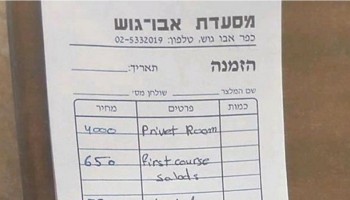 מסעדת אבו-גוש
כפר אבו גוש, טלפון: 02-5332019
הזמנה
תאריך:
שם המלצר שולחן מס׳
כמות פרטים מחיר
Privet Room 4000
first course 650
salads